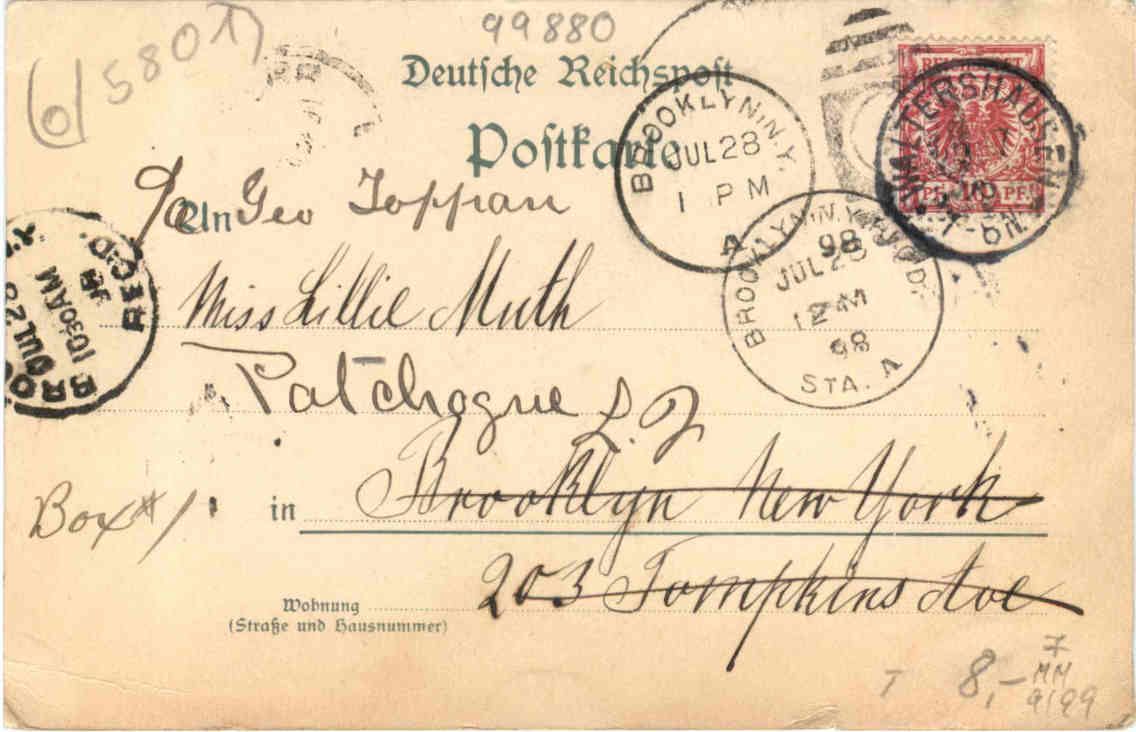 99880
6/5801
Deutsche Reichspost
Postkarte
BROOKLYN, N.Y.
JUL 28
1 PM
98
A
WALTERSHAUSEN
10 PF.
BROOKLYN, N.Y. REC'D.
JUL 28
12 M
98
STA. A
REC'D.
JUL 28
1030 AM
98
An
c/o Geo Toppan
Miss Lillie Muth
Patchogue L. I
Box #1
in Brooklyn New York
203 Tompkins Ave
Wohnung
(Straße und Hausnummer)
T 8,-
7
MM
9/99